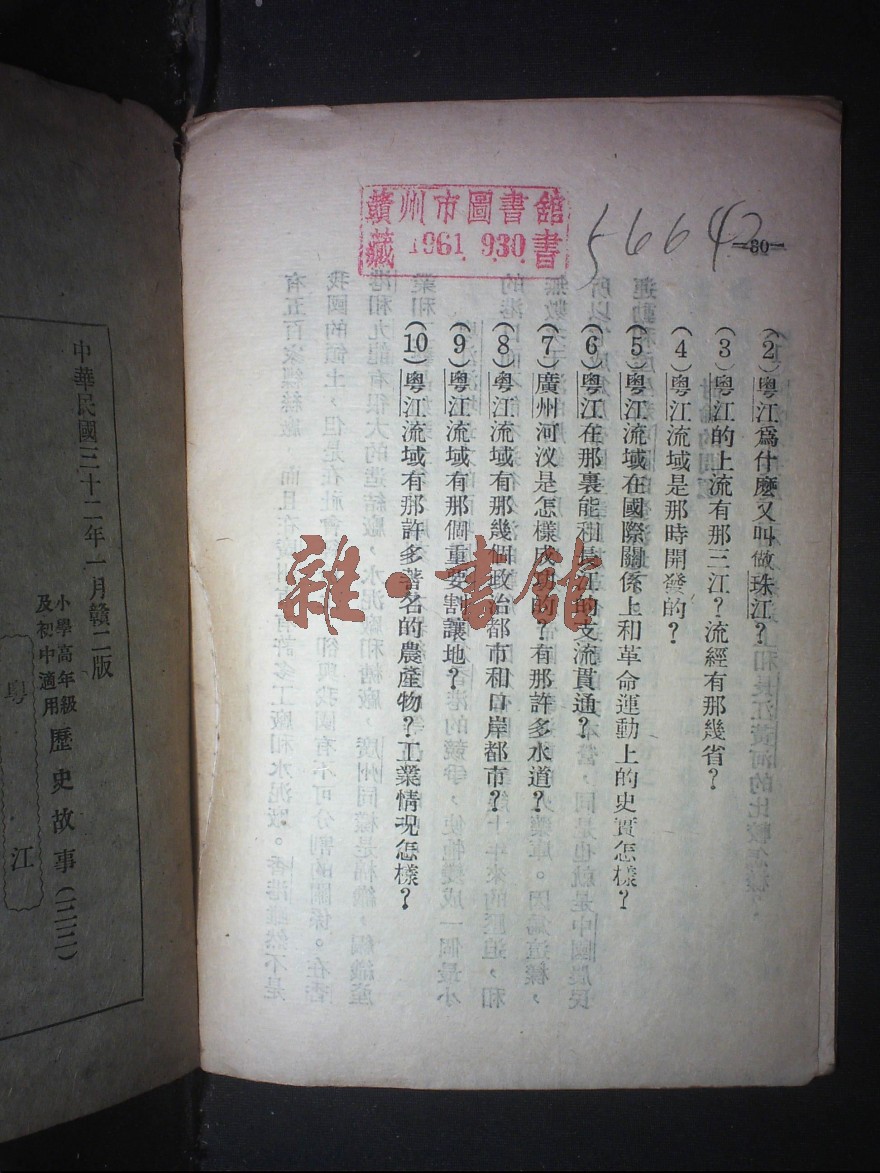 贛州市圖書館
藏 1961.9.30. 書
56642
—80—
(2)粵江爲什麼又叫做珠江？
(3)粵江的上流有那三江？流經有那幾省？
(4)粵江流域是那時開發的？
(5)粵江流域在國際關係上和革命運動上的史實怎樣？
(6)粵江在那裏能和長江的支流貫通？
(7)廣州河汊是怎樣成功的？有那許多水道？
(8)粵江流域有那幾個政治都市和口岸都市？
(9)粵江流域有那個重要割讓地？
(10)粵江流域有那許多著名的農產物？工業情況怎樣？
雜·書館
中華民國三十二年一月贛二版
小學高年級
及初中適用
歷史故事(三三)
粵江